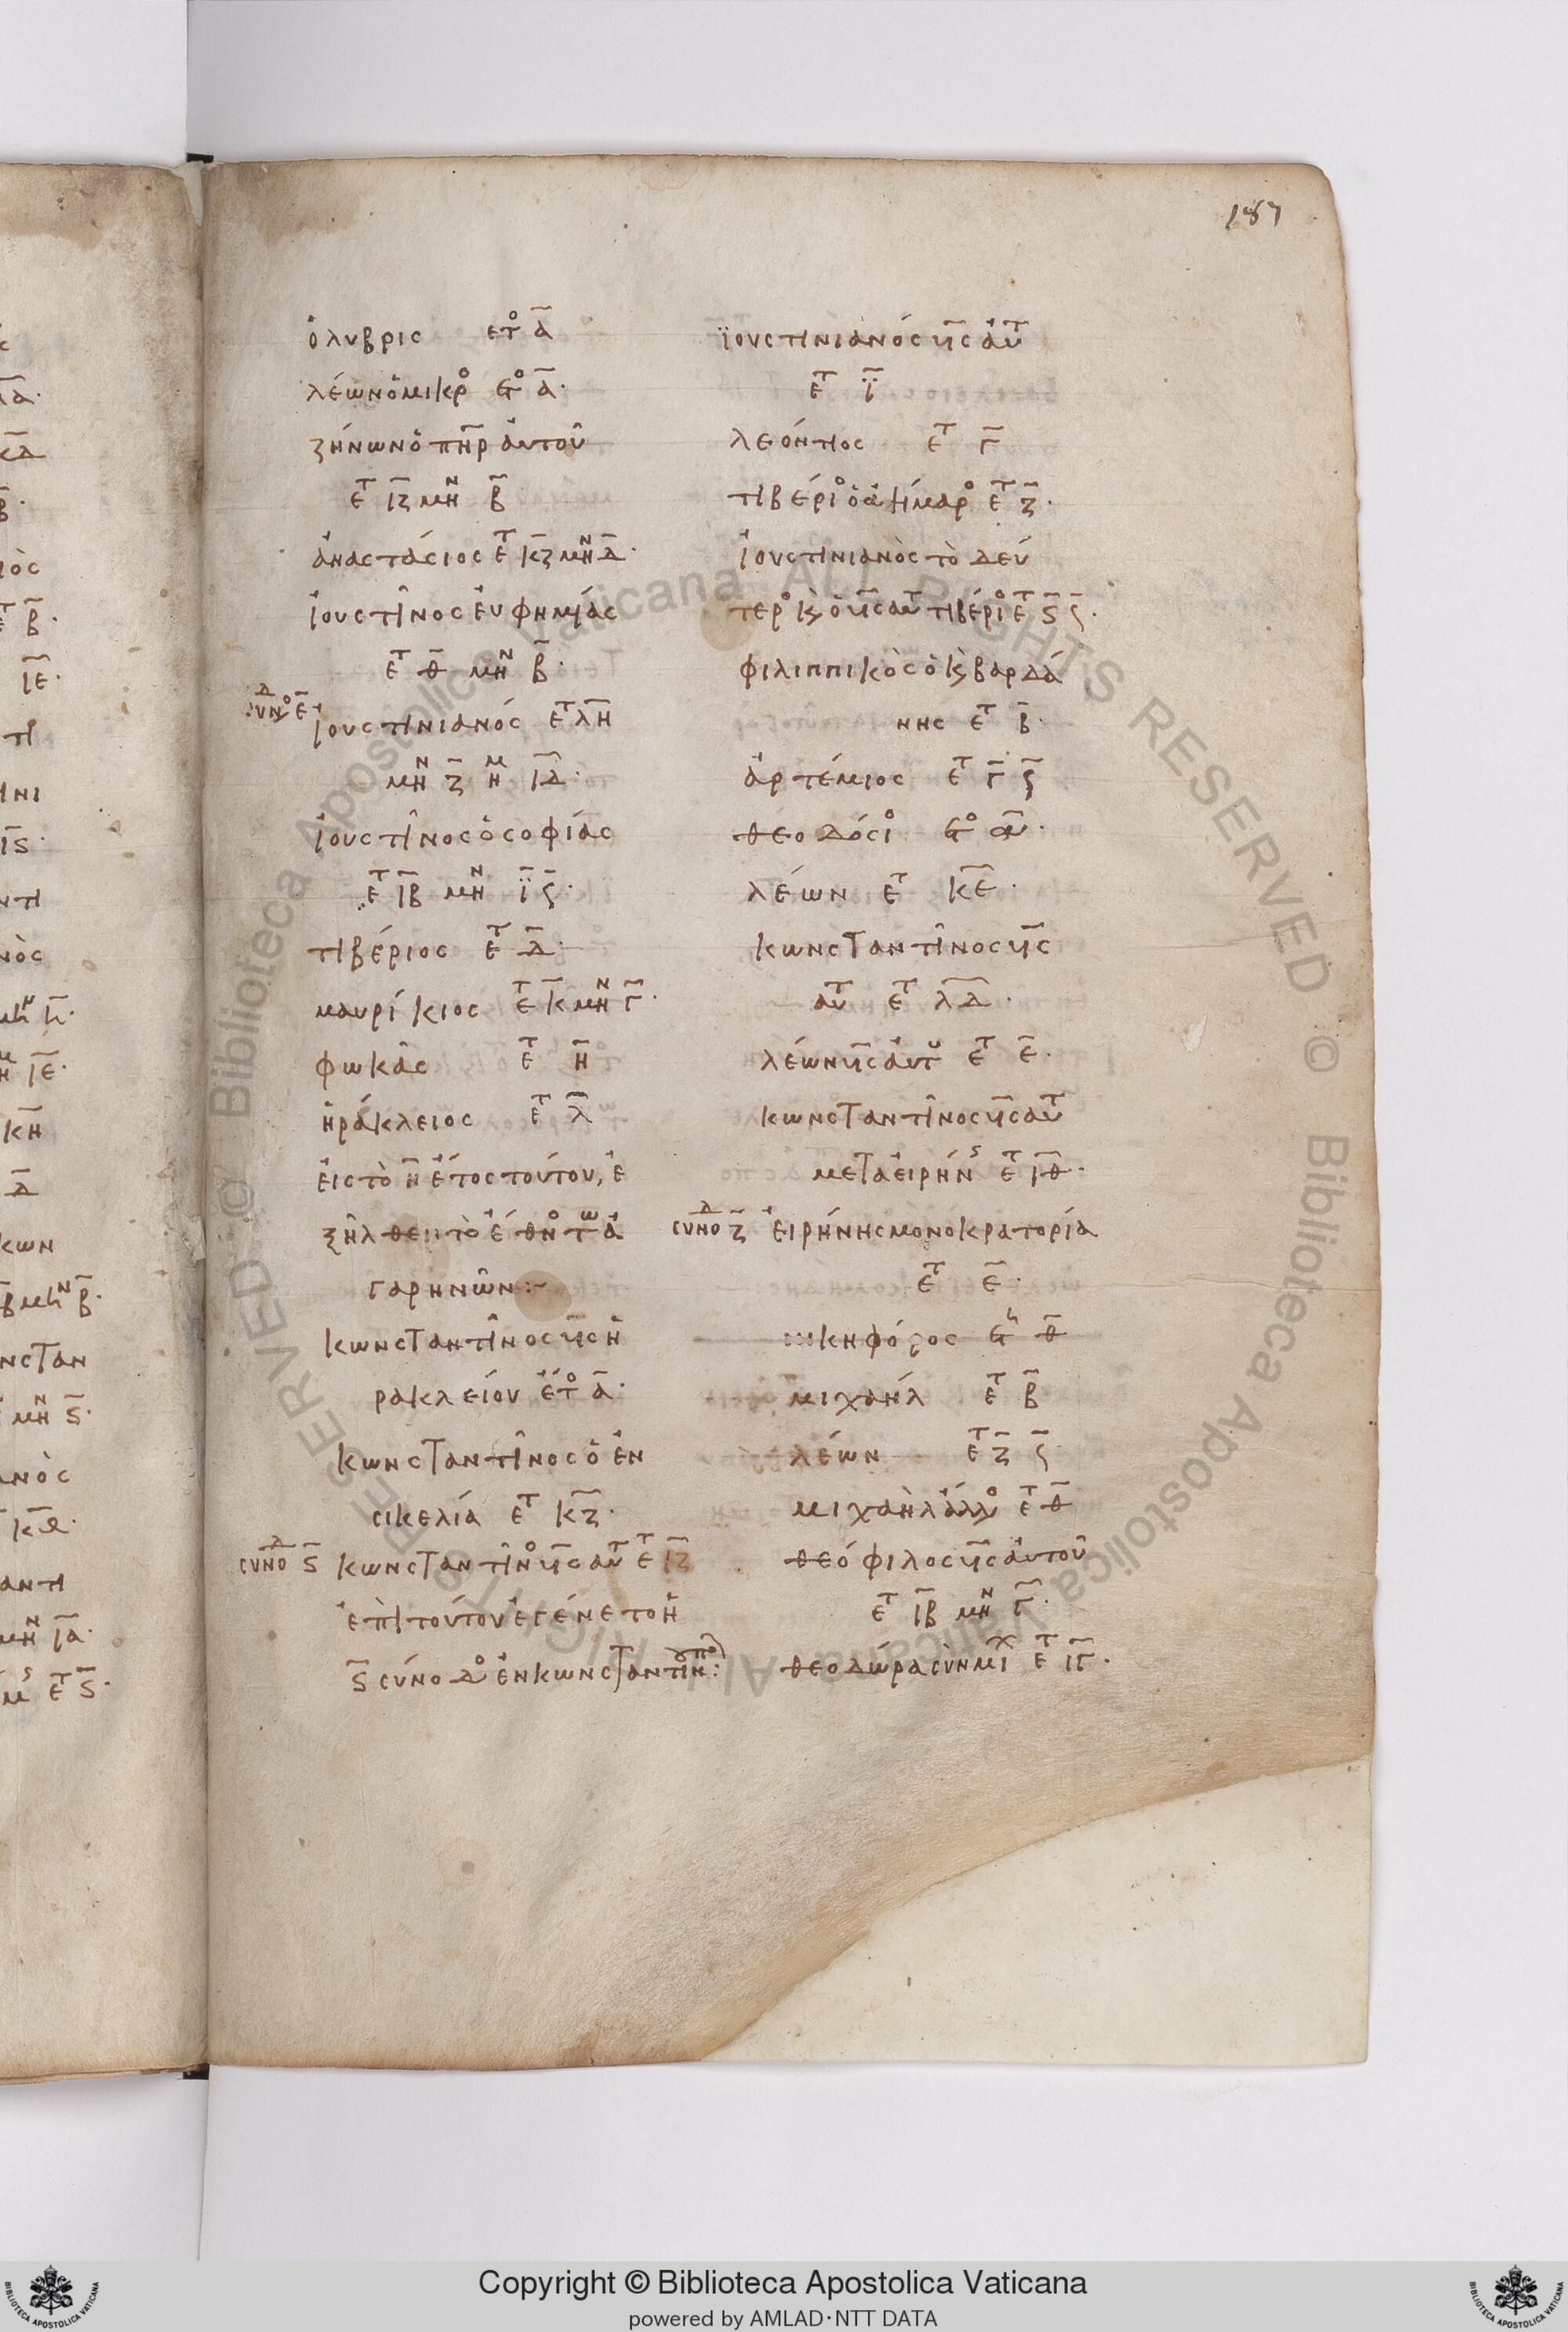 187
ὀλυβρις ετο α
λέωνὁμικρο ετο α·
ζήνωνὁ πηρ ἀυτοῦ
ετ ιζ μην β
ἀναστάσιος ετ κζ μην δ·
ἰουστῖνος ἐυφημίας
ετ θ μην β·
συνοδ ε
ἰουστινιανός ετ λη
μην ζ ημ ιδ·
ἰουστῖνος ὁ σοφίας
ετ ιβ μην ϊ ϛ·
τιβέριος ετ δ·
μαυρίκιος ετ κ μην γ·
φωκᾶς ετ η
ἡράκλειος ετ λ
ἐις τὸ η ἔτος τούτου, ἐ
ξῆλθεν τὸ ἔθνο τω ἀ
γαρηνῶν:~
κωνσταντῖνος υς ἡ
ρακλείου ἔτο α·
κωνσταντῖνος ὁ ἐν
σικελία ετ κζ·
συνοδ ϛ κωνσταντῖνο υς αυτ ετ ιζ
ἐπὶ τούτου ἐγένετο ἡ
ϛ σύνοδο ἐν κωνσταντινπο:
ϊουστινιανός υς ἀυτ
ετ ϊ
λεόντιος ετ γ
τιβέριο ὁ ἀψίμαρο ετ ζ·
ἰουστινιανὸς τὸ δεύ
τερο κ ὁ υς αυτ τιβέριο ετ ϛ ϛ·
φιλιππικὸς ὁ κ βαρδά
νης ετ β·
ἀρτέμιος ετ γ ϛ
θεοδόσιο ετο αν·
λέων ετ κε·
κωνσταντῖνος υς
αυτ ετ λδ·
λέων υς ἀυτου ετ ε·
κωνσταντῖνος υς αυτ
μετα ἐιρήν ετ ιθ·
συνοδ ζ ἐιρήνης μονοκρατορία
ετ ε·
κηφόρος ετ θ
μιχαήλ ετ β
λέων ετ ζ ϛ
μιχαὴλ ἄλλο ετ θ
θεόφιλος υς ἀυτοῦ
ετ ιβ μην γ·
θεοδώρα σὺν μιχ ετ ιγ·
Copyright © Biblioteca Apostolica Vaticana
powered by AMLAD·NTT DATA